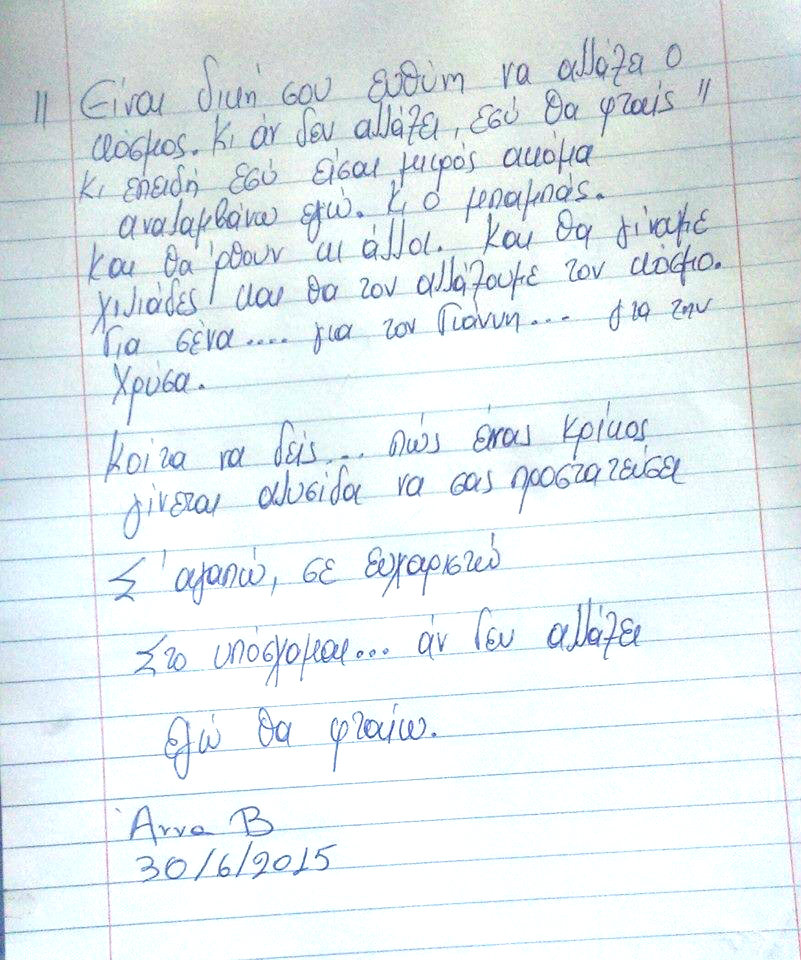 " Είναι δική σου ευθύνη να αλλάξει ο
κόσμος. Κι άν δεν αλλάξει, εσύ θα φταίς "
Κι επειδή εσύ είσαι μικρός ακόμα
αναλαμβάνω εγώ. Κι ο μπαμπάς.
Και θα ρθουν κι άλλοι. Και θα γίνουμε
χιλιάδες και θα τον αλλάξουμε τον κόσμο.
Για σένα.... για τον Γιάννη... για την
Χρύσα.
Κοίτα να δεις... πώς ένας κρίκος
γίνεται αλυσίδα να σας προστατεύσει
Σ' αγαπώ, σε ευχαριστώ
Στο υπόσχομαι... άν δεν αλλάξει
εγώ θα φταίω.
Άννα Β
30/6/2015